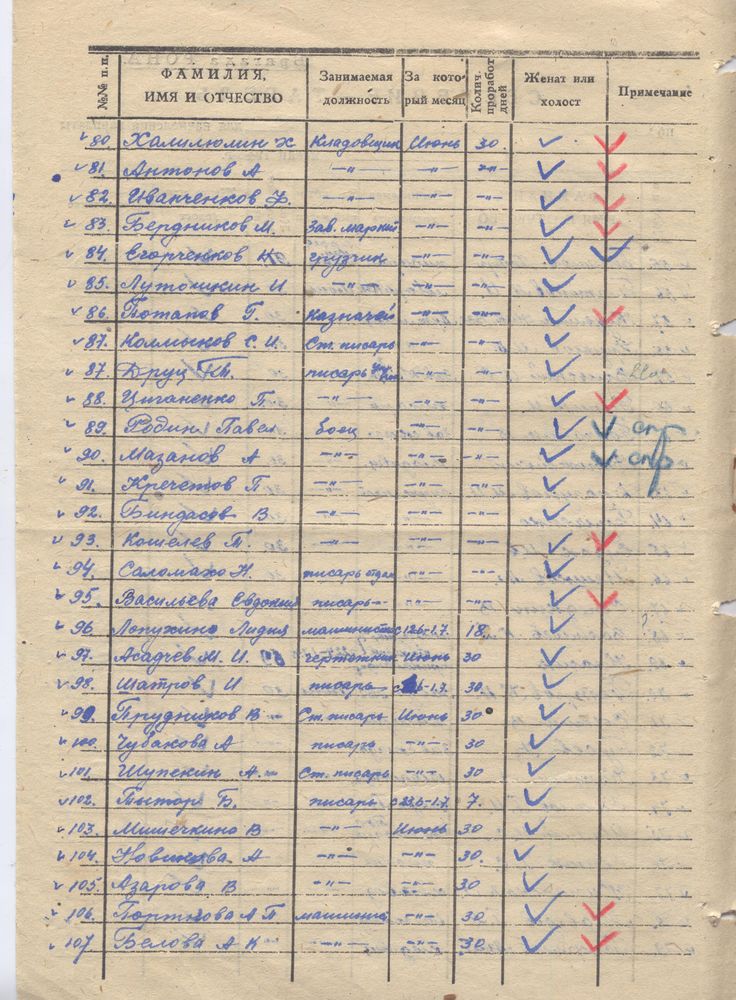 №№ п. п.
ФАМИЛИЯ, ИМЯ И ОТЧЕСТВО
Занимаемая должность
За который месяц
Колич. проработ дней
Женат или холост
Примечание
80. Халилюлин Х Кладовщик Июнь 30.
81. Антонов А —"— —"— —"—
82. Иванченков Ф. —"— —"— —"—
83. Бердников М. Зав. —"— —"—
84. Егорченков грузчик —"— —"—
85. Лутошкин И —"— —"— —"—
86. Потапов Г. казначей —"— —"—
87. С. И. Ст. писарь —"— —"—
87. Друц писарь —"— —"—
88. Циганенко П. —"— —"— —"—
89. Родин Павел боец —"— —"— спр
90. Мазанов А —"— —"— —"— спр
91. Кречетов П —"— —"— —"—
92. Биндасов В —"— —"— —"—
93. Кошелев Т. —"— —"— —"—
94. Соломахо Н. писарь отдел —"— —"—
95. Васильева Евдокия писарь —"— —"—
96 Лопухина Лидия машинистка с 12.6-1.7. 18.
97. Асадчев М. И. чертежник Июнь 30
98. Шатров И писарь 6-1.7. 30.
99. Прудников В Ст. писарь Июнь 30
100. Чубакова А писарь —"— 30
101. Шупекин А. Ст. писарь —"— 30
102. Б. писарь с 23.6-1.7. 7.
103. Мишечкина В —"— Июнь 30
104. Новикова А —"— —"— 30.
105. Азарова В —"— —"— 30
106. Портнова А П машинис —"— 30
107 Белова А К —"— —"— 30.